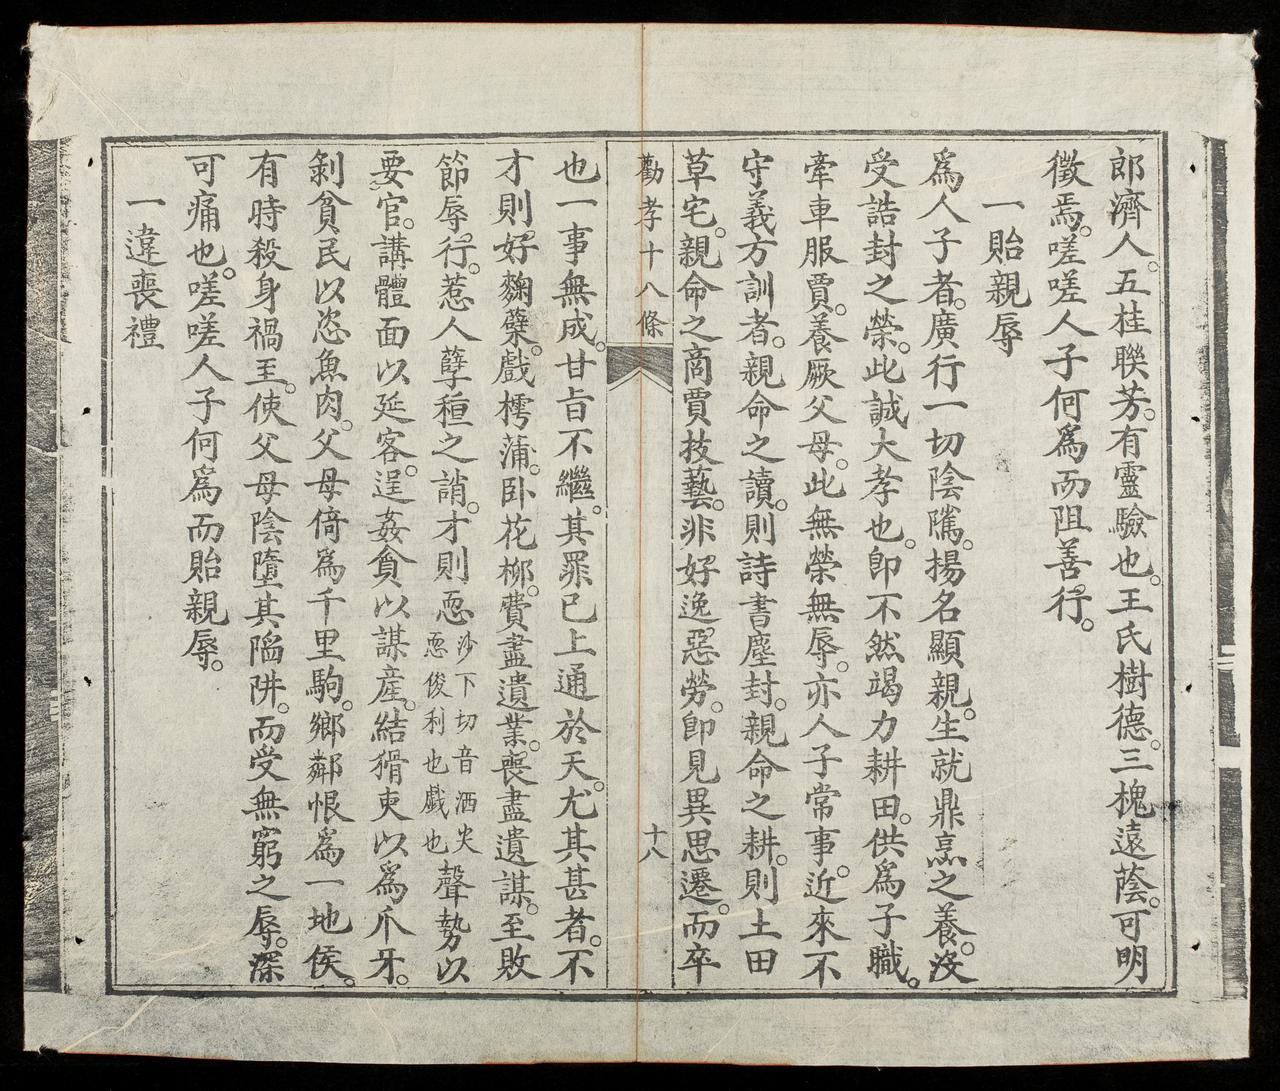 郎濟人。五桂聯芳。有靈驗也。王氏樹德。三槐遠蔭。可明
徵焉。嗟嗟人子何爲而阻善行。
一貽親辱
爲人子者。廣行一切陰隲。揚名顯親。生就鼎烹之養。沒
受誥封之榮。此誠大孝也。卽不然竭力耕田。供爲子職。
牽車服賈。養厥父母。此無榮無辱。亦人子常事。近來不
守義方訓者。親命之讀。則詩書塵封。親命之耕。則土田
草宅。親命之商賈技藝。非好逸惡勞。卽見異思遷。而卒
勸孝十八條
十八
也一事無成。甘旨不繼。其罪已上通於天。尤其甚者。不
才則好麴櫱。戲樗蒲。卧花柳。費盡遺業。喪盡遺謀。至敗
節辱行。惹人孽種之誚。才則
沙下切音洒尖
俊利也戲也
聲勢以
要官。講體面以延客。逞姦貪以謀產。結猾吏以爲爪牙。
剝貧民以恣魚肉。父母倚爲千里駒。鄉鄰恨爲一地侯。
有時殺身禍至。使父母陰墮其陷阱。而受無窮之辱。深
可痛也。嗟嗟人子何爲而貽親辱。
一違喪禮